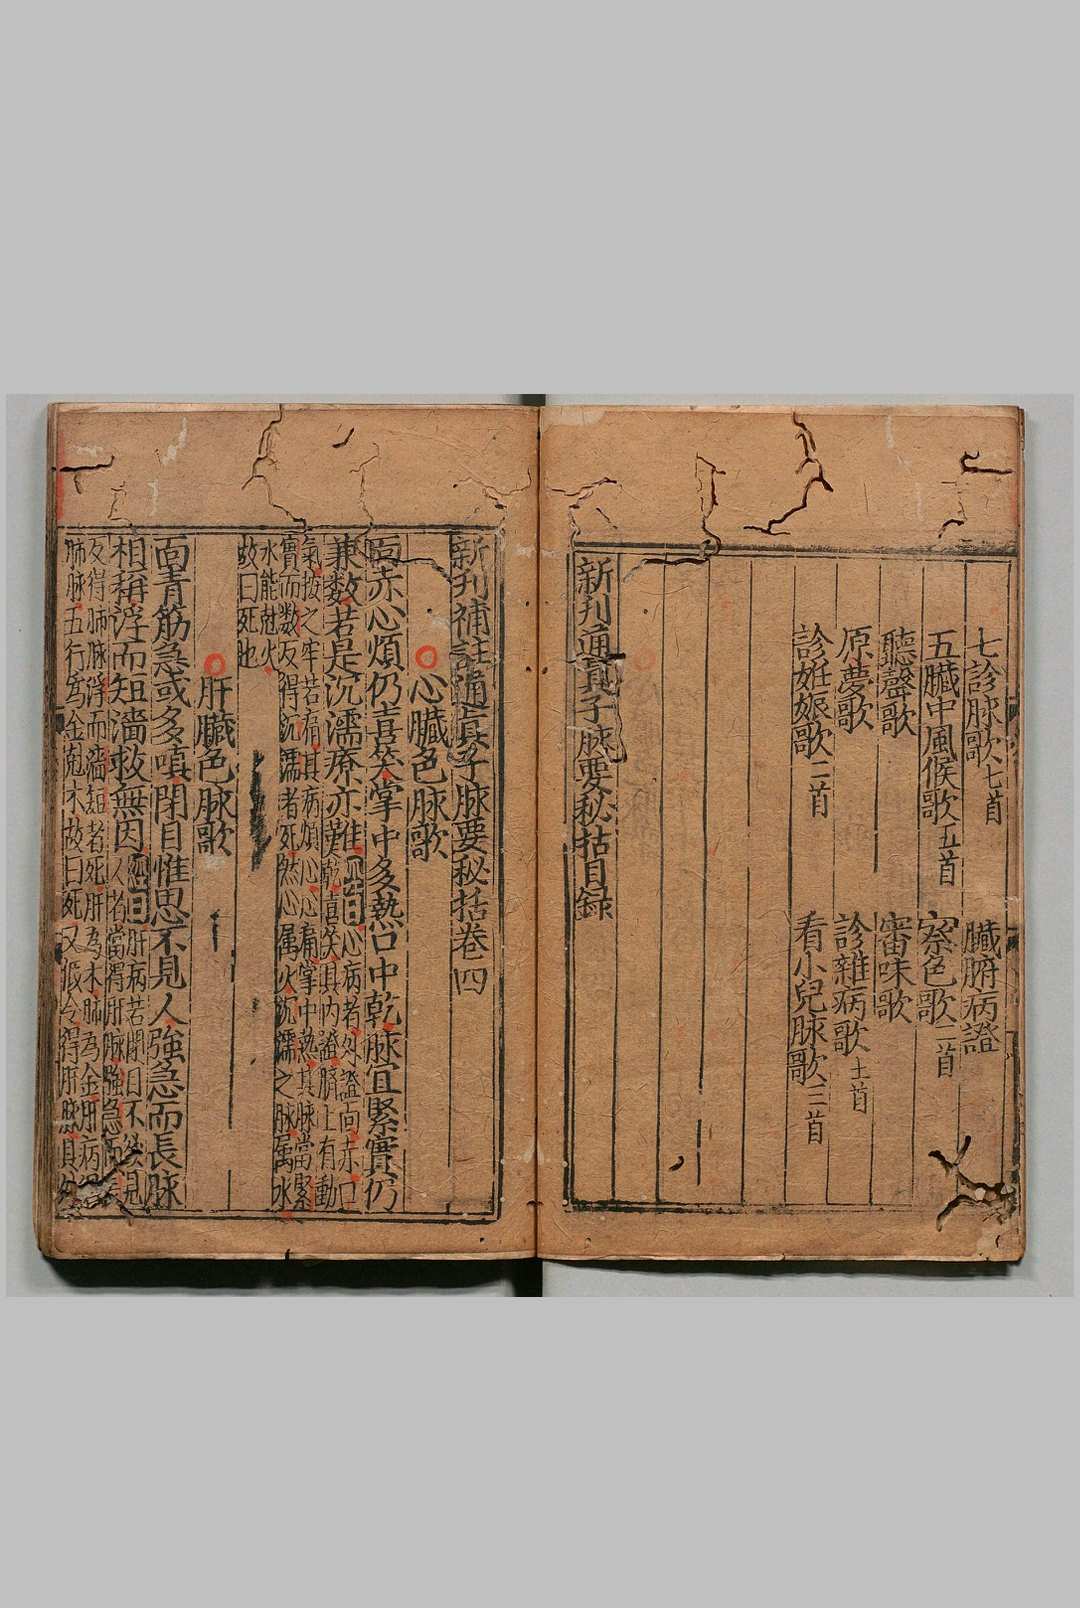 七診脉歌七首　臟腑病證
五臟中風候歌五首　察色歌二首
聽聲歌　審味歌
原夢歌　診雜病歌十一首
診妊娠歌二首　看小兒脉歌三首
新刋通眞子脉要秘括目録
新刋補註通眞子脉要秘括卷四
心臟色脉歌
面赤心煩仍喜笑掌中多熱口中乾脉宜緊實仍
兼数若是沉濡療亦難
心病者外證面赤口
乾喜笑其内證臍上有動
氣按之牢若痛其病煩心心痛掌中熱其脉當緊
實而数反得沉濡者死然心属火沉濡之脉属水
水能尅火
故曰死也
肝臟色脉歌
面青筋急或多嗔閉目惟思不見人強急而長脉
相稱浮而短濇救無因
肝病若閉目不欲見
人者當得肝脉強急而長
反得肺脉浮而濇短者死肝為木肺為金肝病
肺脉五行為金尅木故曰死又假令得肝脉其